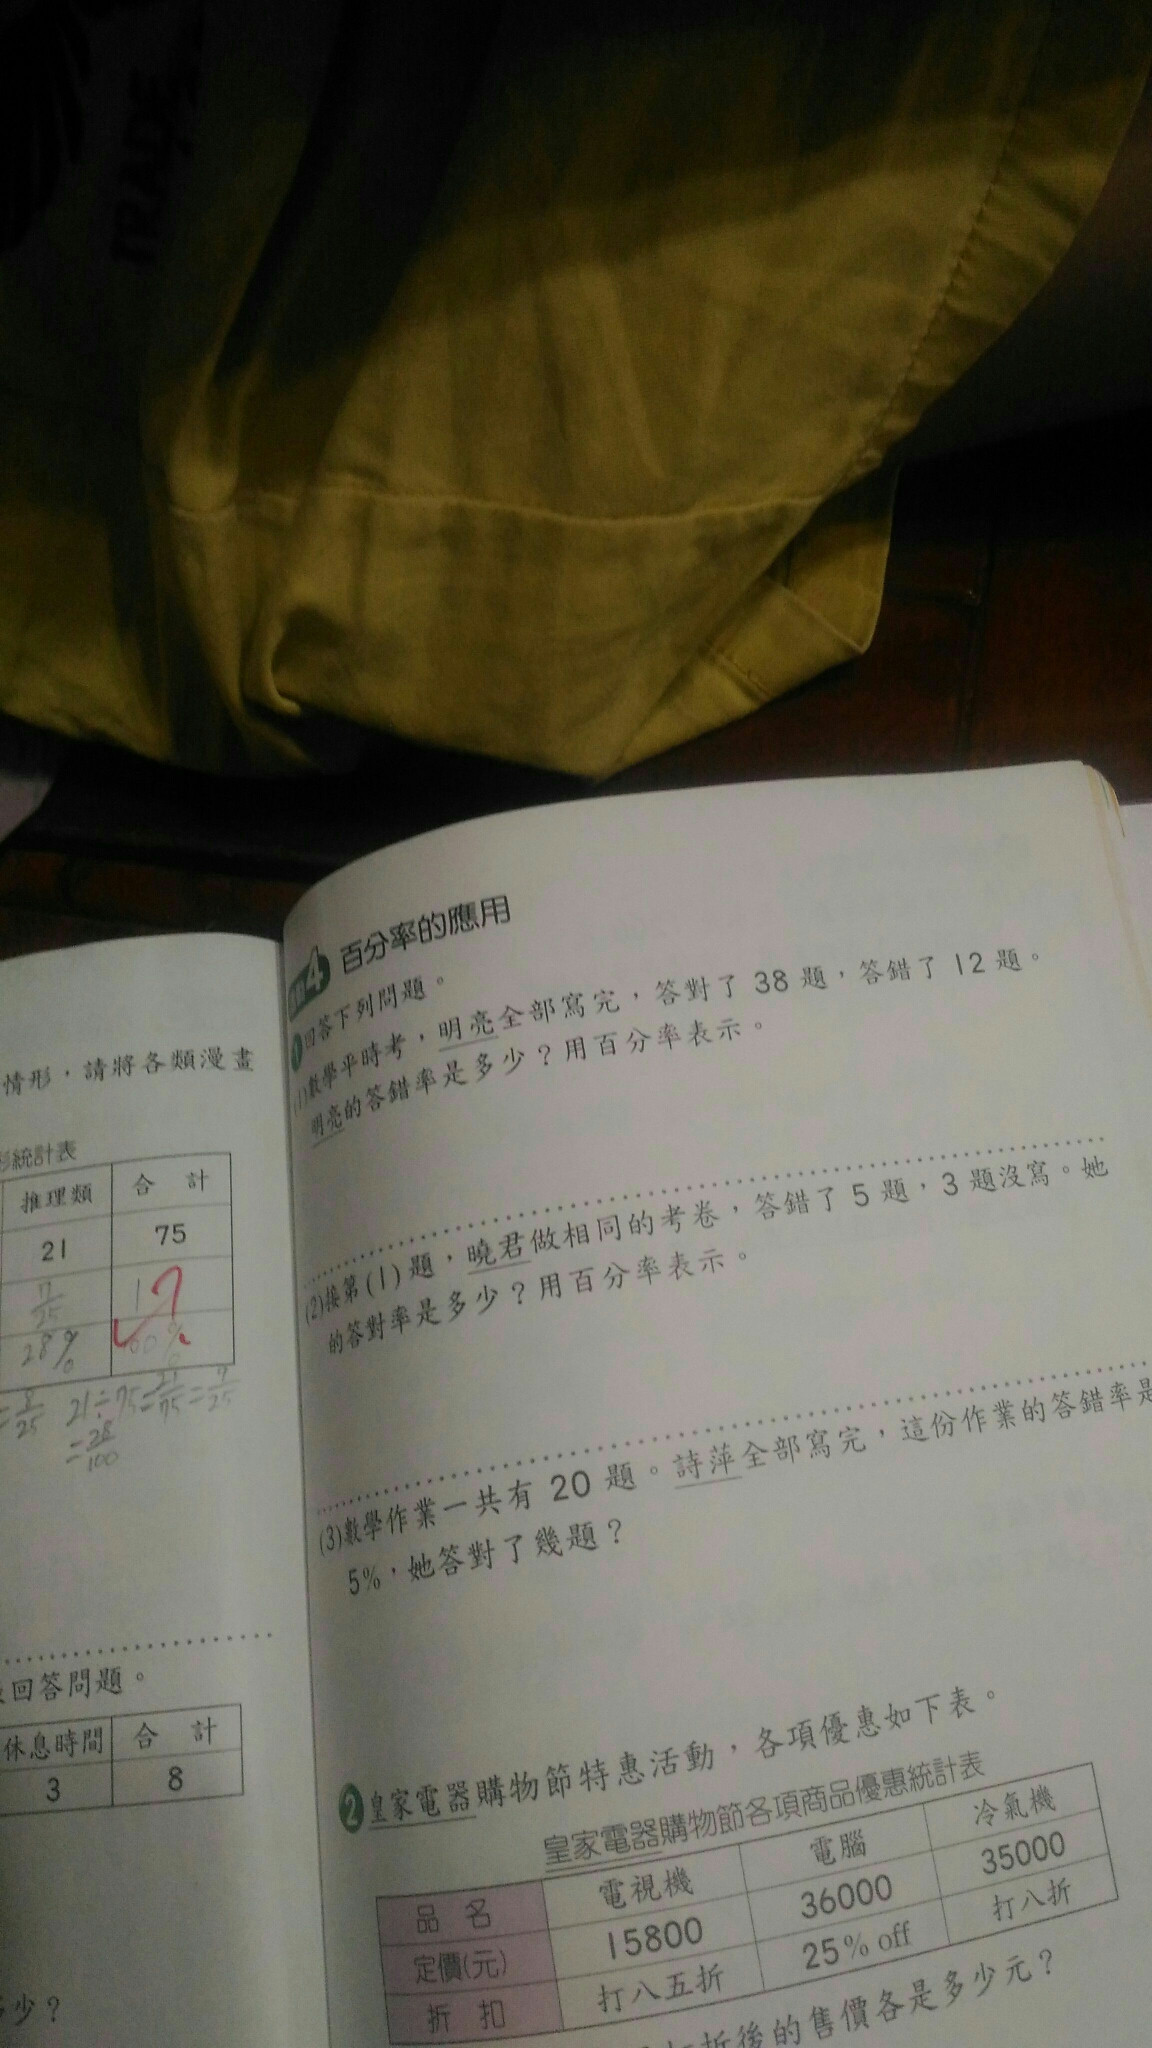 TRADE
情形，請將各類漫畫
統計表
推理類 合計
21 75
7/25 1
28% 100%
=8/25 21÷75=21/75=7/25
=28/100
回答問題。
休息時間 合計
3 8
少？
4 百分率的應用
1 回答下列問題。
(1)數學平時考，明亮全部寫完，答對了38題，答錯了12題。
明亮的答錯率是多少？用百分率表示。
(2)接第(1)題，曉君做相同的考卷，答錯了5題，3題沒寫。她
的答對率是多少？用百分率表示。
(3)數學作業一共有20題。詩萍全部寫完，這份作業的答錯率是
5%，她答對了幾題？
2 皇家電器購物節特惠活動，各項優惠如下表。
皇家電器購物節各項商品優惠統計表
品名 電視機 電腦 冷氣機
定價(元) 15800 36000 35000
折扣 打八五折 25% off 打八折
折後的售價各是多少元？